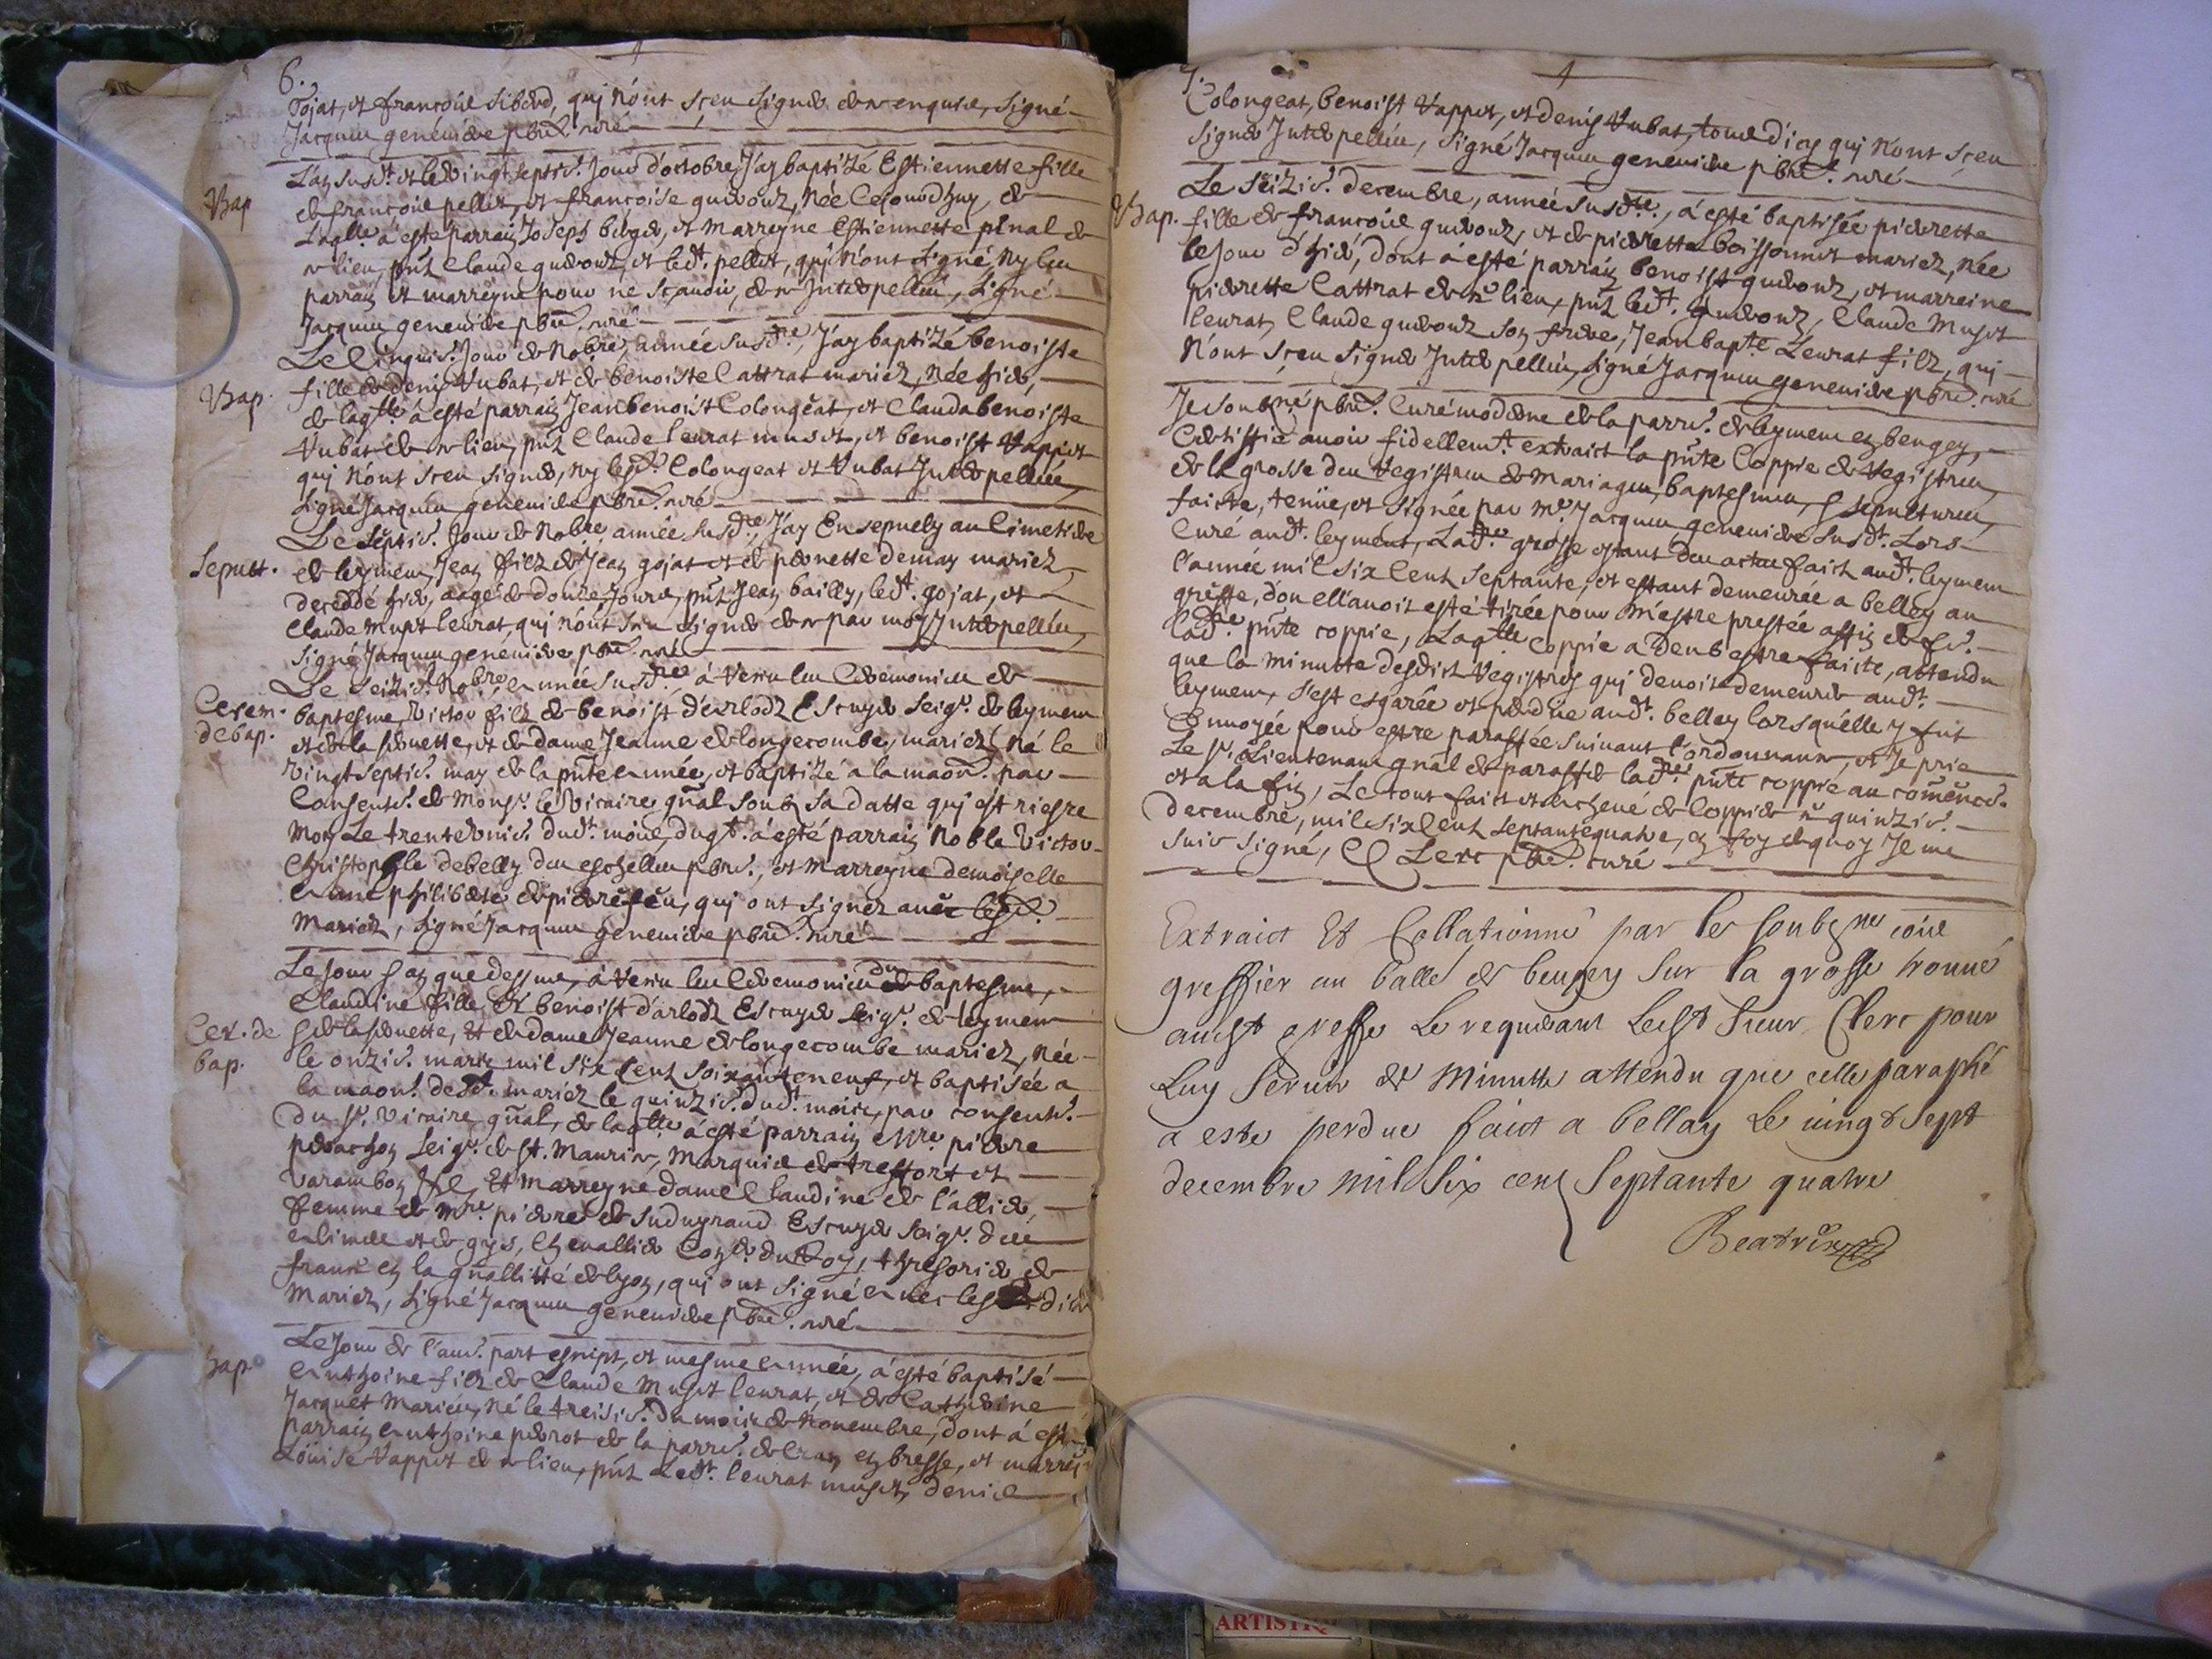 6.
gojat, et francois siberd, qui n'ont sceu signer de ce enquis, signé
Jacques geneviere pbre. curé
Bap
L'an susdt. et le vingt septie. jour d'octobre, j'ay baptizé Estiennette fille
de francois pellet, et francoise guerout, née ce jourdhuy, de
laqlle. a esté parrain Joseph berger, et marreyne Estiennette penal de
ce lieu, pnts Claude guerout, et ledt. pellet, qui n'ont signé ny les
parrain et marreyne pour ne sçavoir, de ce interpellés, signé
Jacques geneviere pbre. curé
Bap.
Le Cinquie. jour de Nobre, année susdre, j'ay baptizé benoiste
fille de denis Vubat, et de benoiste Cattrat mariez, née hier,
de laqlle a esté parrain Jean benoist Colongeat, et Clauda benoiste
Vubat de ce lieu, pnts Claude leurat musot, et benoist Vappot
qui n'ont sceu signer, ny lesd. Colongeat et Vubat interpellés,
signé Jacques geneviere pbre. curé
Sepult.
Le Septie. jour de Nobre, année susdre, j'ay Ensepvely au Cimetiere
de leymen, Jean filz de Jean gojat et de pernette demay mariez,
decedé hier, aagé de douze jours, pnts Jean bailly, ledt. gojat, et
Claude musot leurat, qui n'ont sceu signer de ce par moy interpellés,
signé Jacques geneviere pbre. curé
Cerem.
de bap.
Le Seizie. Nobre, année susdre, a receu les Ceremonies de
baptesme, victor filz de benoist d'arlodz Escuyer seigr. de leymen
et de la servette, et de dame Jeanne de longecombe, mariez, né le
vingt septie. may de la pnte année, et baptizé a la maon. par
Consente. de Monsr. le vicaire gnal soubz sa datte qui est riesre
moy le trente unie. dudt. mois, duqt. a esté parrain Noble victor
Christophle debelly des eschelles pbre., et Marreyne demoiselle
anne philiberte de pierre, qui ont signez avec lesd.
Mariez, signé Jacques geneviere pbre. curé
Cer. de
bap.
Le jour & an que dessus, a receu les Ceremonies du baptesme,
Claudine fille de benoist d'arlodz Escuyer seigr. de leymen
& de la servette, et de dame Jeanne de longecombe mariez, née
le onzie. mars mil six cent soixante neuf, et baptisée a
la maon. desdt. mariez le quinzie. dudt. mois, par consente.
du sr. vicaire gnal, de laqlle a esté parrain Mre. pierre
perrachon seigr. de st. Maurice, Marquis de tresfort et
varambon &c, Et marreyne dame Claudine de l'allier,
femme de Mre. pierre de suduyraud Escuyer seigr. des
alimes et de gys, Chevallier Conr. du Roy, thresorier de
france en la gnallitté de lyon, qui ont signé avec lesdits
Mariez, signé Jacques geneviere pbre. curé
Bap.
Le jour de l'aue. part escript, et mesme année, a esté baptisé
anthoine filz de Claude Musot leurat, et de Catherine
Jacquet mariés, né le treisie. du mois de Novembre, dont a esté
parrain anthoine perrot de la parre. de Cran en bresse, et marreyne
Louise Vappot de ce lieu, pnts Ledt. leurat musot, denis
7.
Colongeat, benoist Vappot, et denis Vubat, tous d'icy qui n'ont sceu
signer Interpellés, signé Jacques geneviere pbre. curé
Bap.
Le Seizie. decembre, année susdre., a esté baptisée pierrette
fille de francois guerout, et de pierrette boissonnet mariez, née
le jour d'hier, dont a esté parrain benoist guerout, et marreine
pierrette Cattrat de ce lieu, pnts ledt. guerout, Claude Musot
leurat, Claude guerout son frere, Jean bapte. Leurat filz, qui
n'ont sceu signer Interpellés, signé Jacques geneviere pbre. curé
Je soubzné pbre. Curé moderne de la parre. de leymen en beugey,
Certiffie avoir fidellemt. extraict la pnte Coppie de Registres,
de la grosse des Registres de Mariages, baptesmes, & sepultures,
faicte, tenue, et signée par Me. Jacques geneviere susdt. Lors
Curé audt. leyment, Ladre grosse estant des actes faict audt. leymen
l'année mil six cent septante, et estant demeurée a belley au
greffe, d'ou ell'avoit esté tirée pour m'estre prestée affin de fe.
ladre. pnte coppie, Laqlle Coppie a deub estre faicte, attendu
que la minutte desdits Registres qui devoit demeurer audt.
leymen, s'est esgarée et perdue audt. belley lorsqu'elle y fut
Envoyée pour estre paraffée suivant l'ordonnance, et Je prie
Le sr. Lieutenant gnal de paraffer ladre pnte coppie au comence.
et a la fin, Le tout faict et achevé de Coppier ce quinzie.
decembre, mil six cent septante quatre, en foy de quoy Je me
suis signé, Clerc pbre. curé
Extraict Et Collationné par les soubzné comis
greffier au balle de beugey sur la grosse trouvé
audt greffe Le requerant Ledt Sieur Clerc pour
Luy servir de Minutte attendu que celle paraphé
a esté perdue faict a bellay Le vingt sept
decembre mil six cent septante quatre
Beatrix
ARTISTIQ